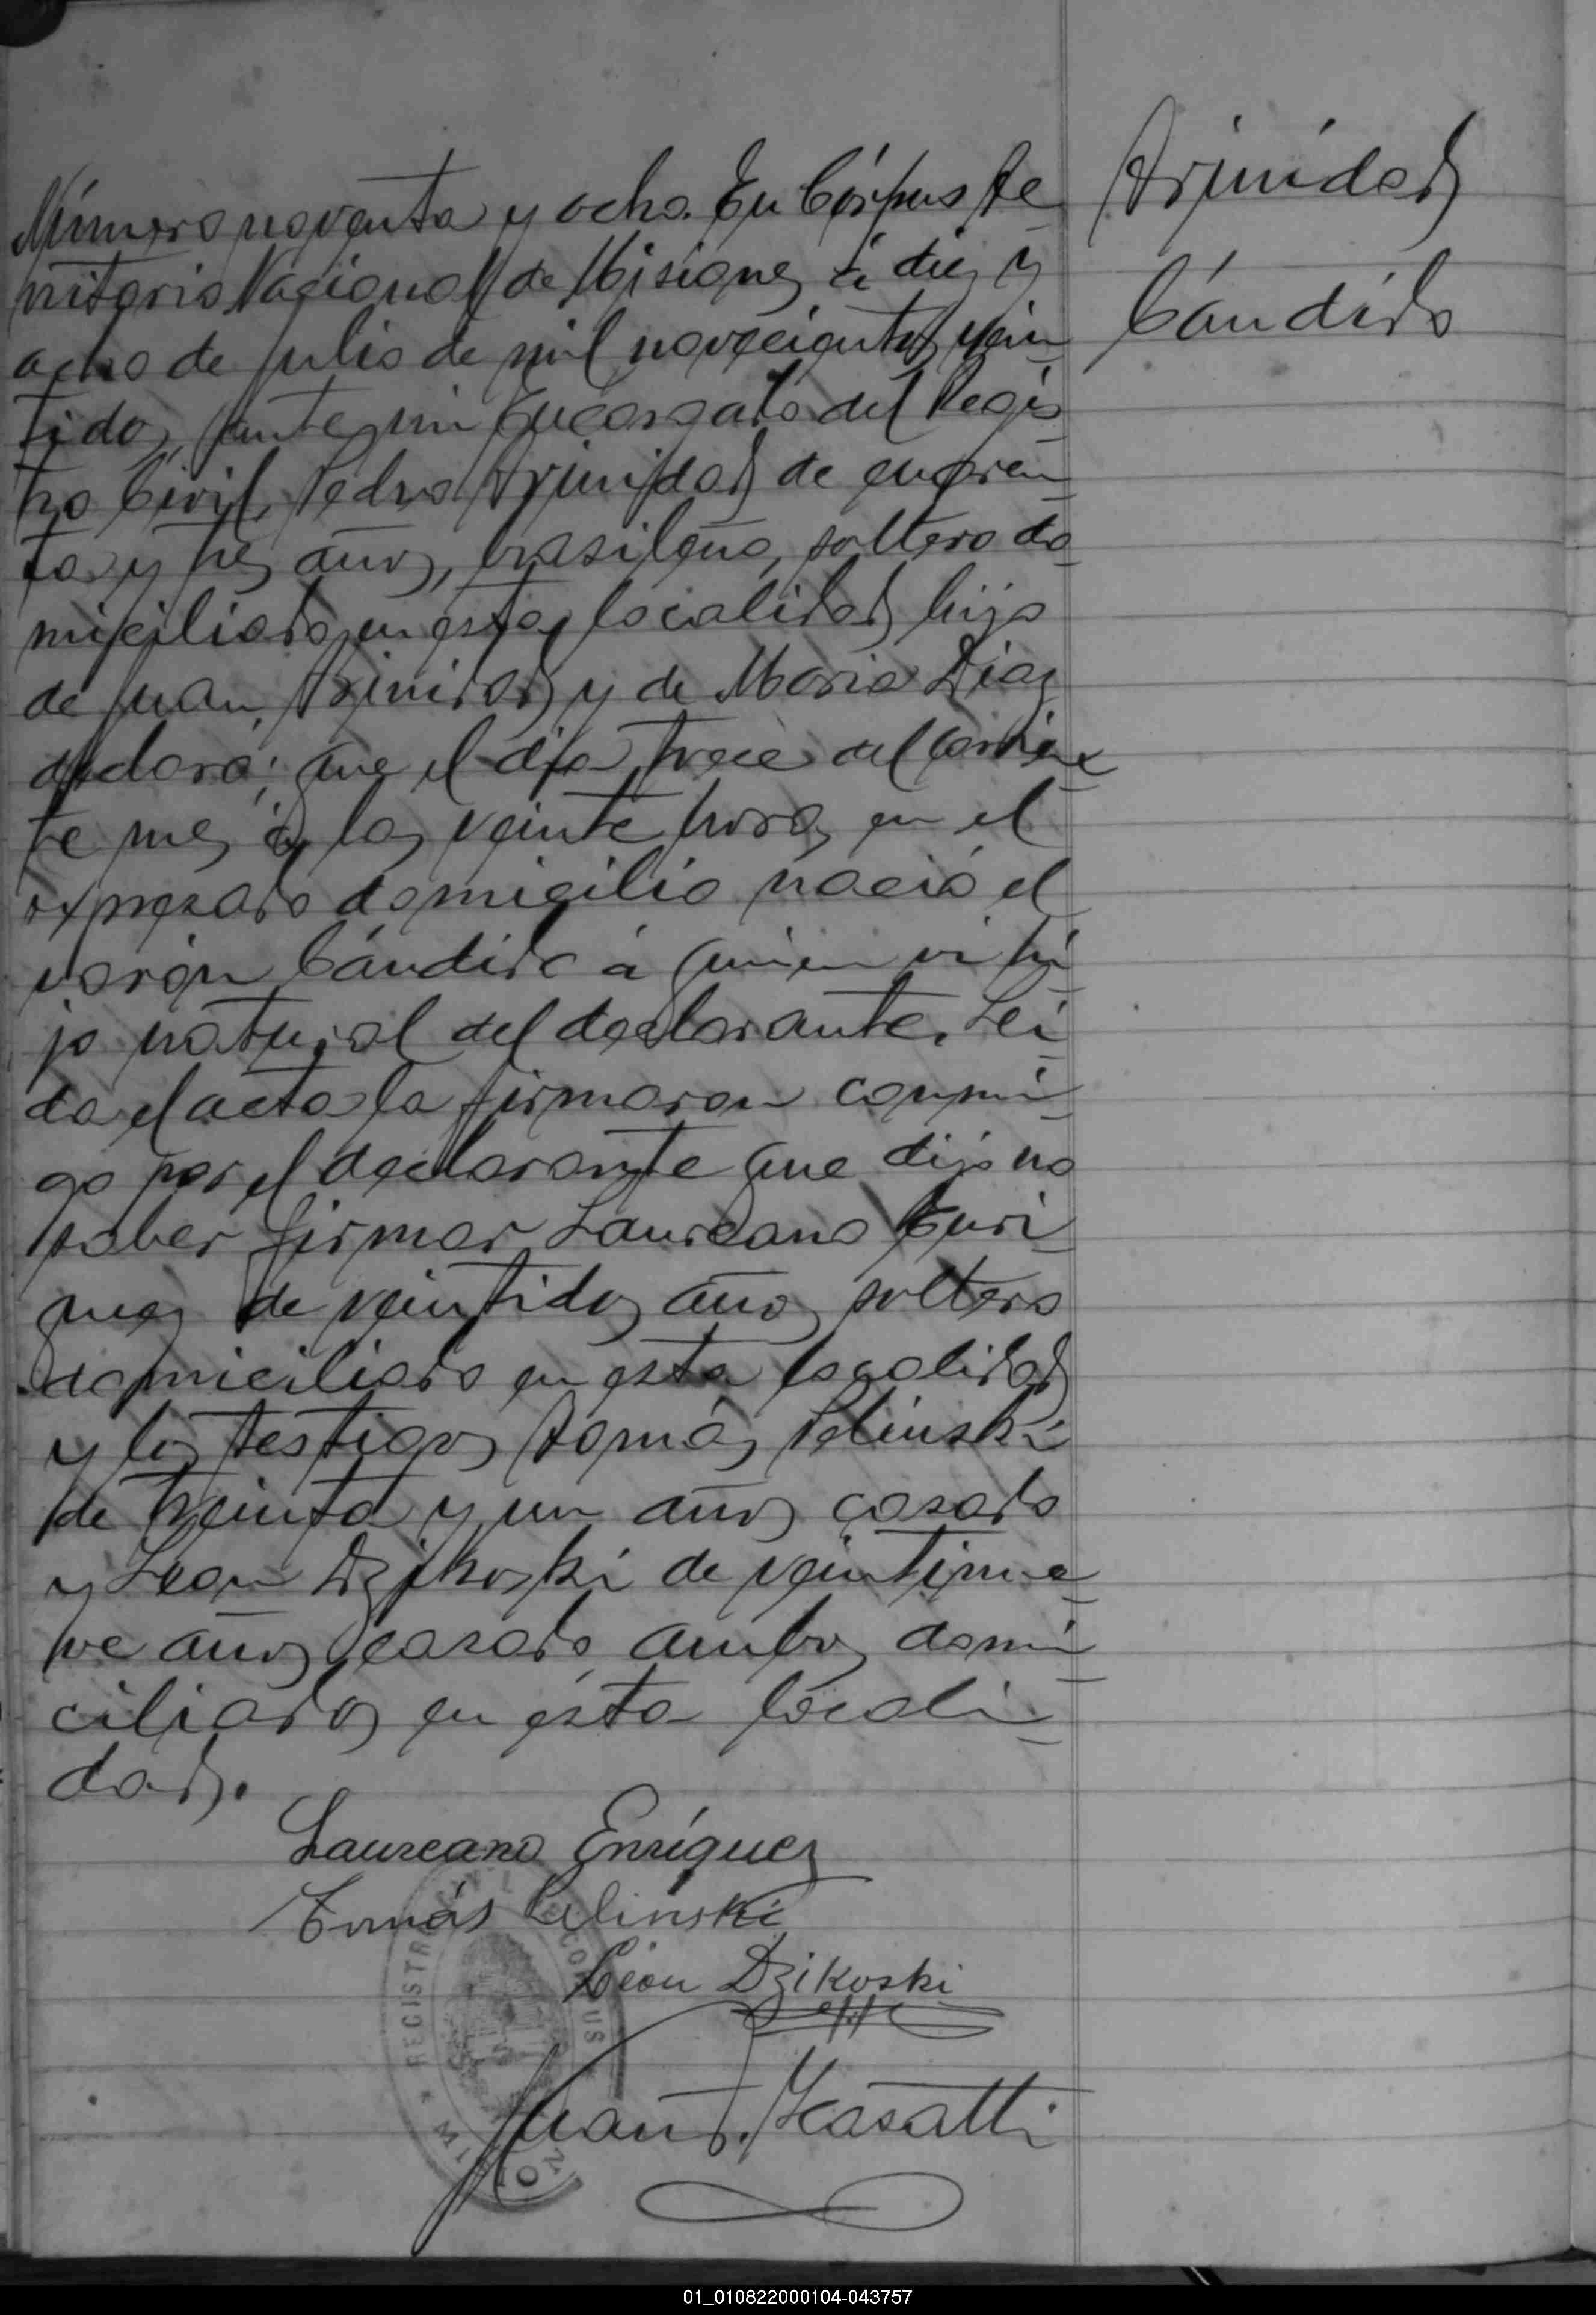 Trinidad
Cándido
Número noventa y ocho. En Córpus Te_
rritorio Nacional de Misiones, á diez y
ocho de julio de mil novecientos vein_
tidos, ante mi Encargado del Regis_
tro Civil, Pedro Trinidad de cuaren_
ta y tres años, brasileño, soltero do_
miciliado en esta localidad hijo
de Juan Trinidad y de Maria Diaz
declaró; que el dia trece del corrien_
te mes á las veinte horas en el
expresado domicilio nació el
varón Cándido á quien vi hi_
jo natural del declarante. Lei_
da el acta la firmaron conmi_
go por el declarante que dijo no
saber firmar Laureano Enri_
quez de veintidos años soltero
domiciliado en esta localidad
y los testigos Tomás Celinski
de treinta y un años casado
y Leon Dzikoski de veintinue_
ve años casado ambos domi_
ciliados en ésta locali_
dad.
Laureano Enríquez
Tomás Celinski
León Dzikoski
Juan
REGISTRO CIVIL CORPUS
* MISIONES
01_010822000104-043757